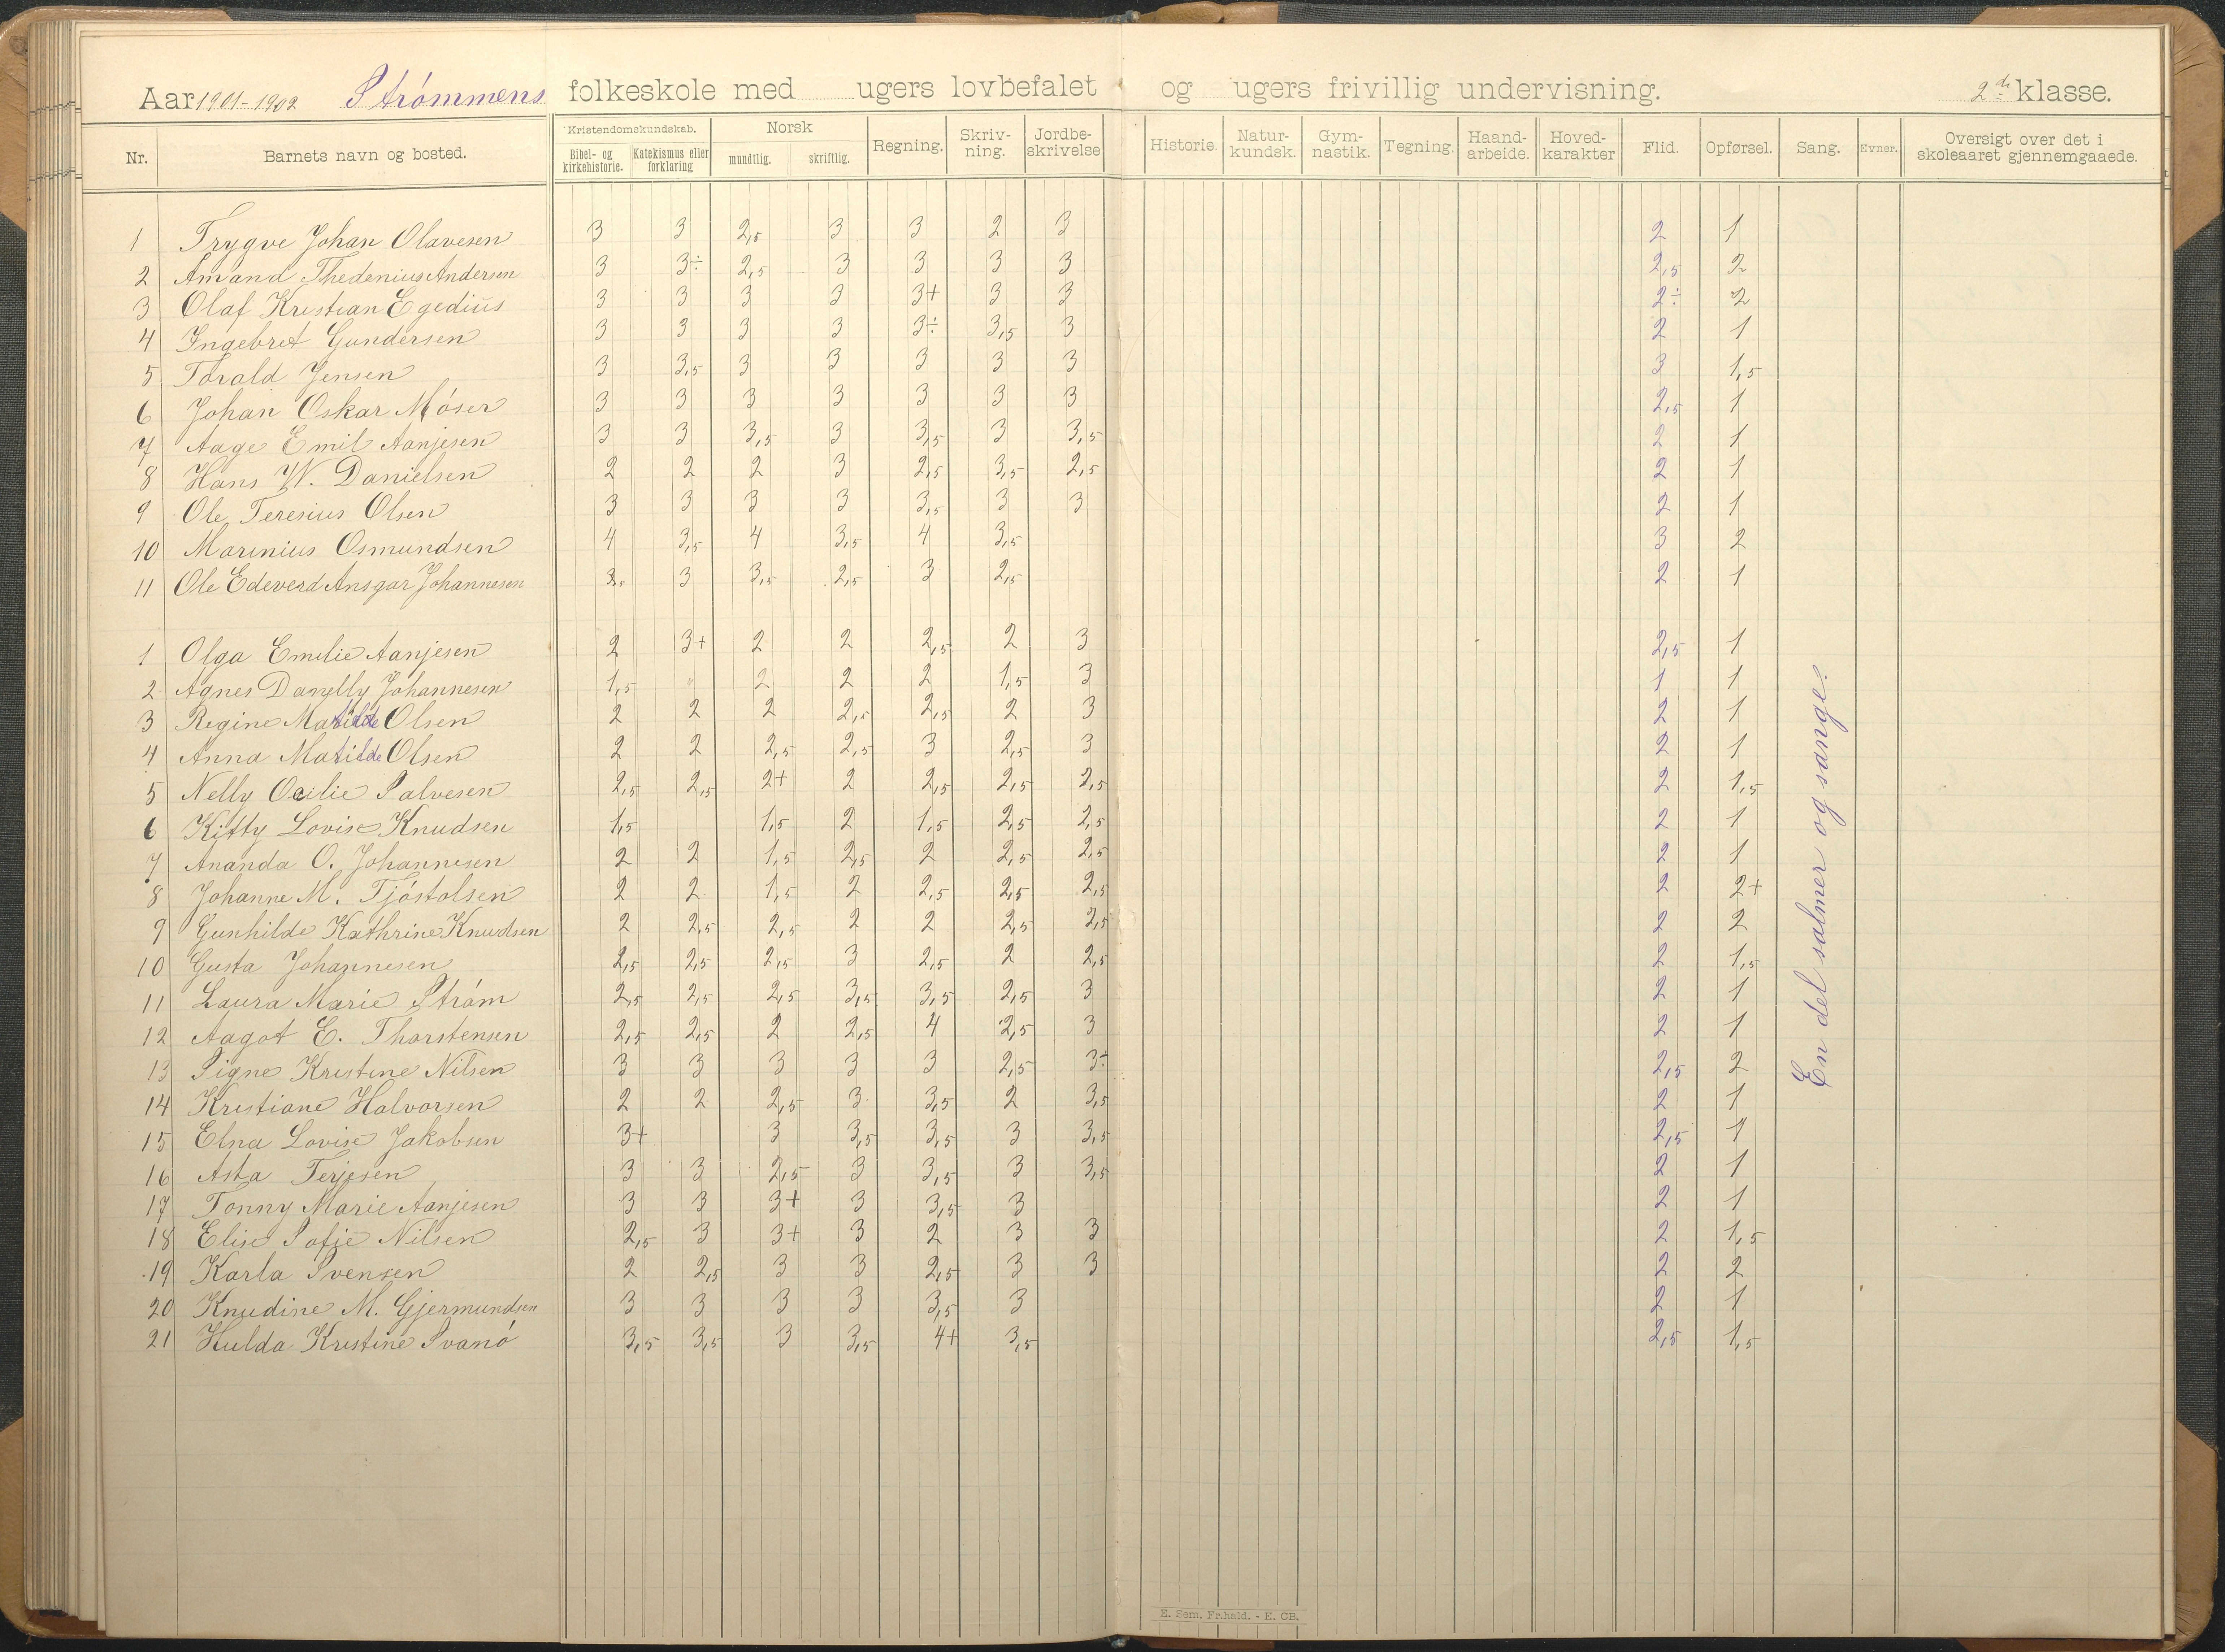 Aar 1901-1902 Strømmens folkeskole med ugers lovbefalet og ugers frivillig undervisning. 2den klasse.
Nr. Barnets navn og bosted. Kristendomskundskab. Bibel- og kirkehistorie. Katekismus eller forklaring Norsk mundtlig. skriftlig. Regning. Skriv-ning. Jordbe-skrivelse Historie. Natur-kundsk. Gym-nastik. Tegning. Haand-arbeide. Hoved-karakter Flid. Opførsel. Sang. Evner. Oversigt over det i skoleaaret gjennemgaaede.
1 Trygve Johan Olavesen 3 3 2,5 3 3 2 3 2 1
2 Amand Thedenius Andersen 3 3÷ 2,5 3 3 3 3 2,5 2
3 Olaf Kristian Egedius 3 3 3 3 3+ 3 3 2÷ 2
4 Ingebret Gundersen 3 3 3 3 3÷ 3,5 3 2 1
5 Torald Jensen 3 3,5 3 3 3 3 3 3 1,5
6 Johan Oskar Móser 3 3 3 3 3 3 3 2,5 1
7 Aage Emil Aanjesen 3 3 3,5 3 3,5 3 3,5 2 1
8 Hans W. Danielsen 2 2 2 3 2,5 3,5 2,5 2 1
9 Ole Teresius Olsen 3 3 3 3 3,5 3 3 2 1
10 Marinius Osmundsen 4 3,5 4 3,5 4 3,5 3 2
11 Ole Edeverd Ansgar Johannesen 3 3,5 2,5 3 2,5 2 1
1 Olga Emilie Aanjesen 2 3+ 2 2 2,5 2 3 2,5 1
2 Agnes Danelly Johannesen 1,5 2 2 2 1,5 3 1 1
3 Regine Matilde Olsen 2 2 2 2,5 2,5 2 3 2 1
4 Anna Matilde Olsen 2 2 2,5 2,5 3 2,5 3 2 1
5 Nelly Ocilie Salvesen 2,5 2,5 2+ 2 2,5 2,5 2,5 2 1,5
6 Kitty Lovise Knudsen 1,5 1,5 2 1,5 2,5 2,5 2 1
7 Ananda O. Johannesen 2 2 1,5 2,5 2 2,5 2,5 2 1
8 Johanne M. Tjóstolsen 2 2 1,5 2 2,5 2,5 2,5 2 2+
9 Gunhilde Kathrine Knudsen 2 2,5 2,5 2 2 2,5 2,5 2 2
10 Gusta Johannesen 2,5 2,5 2,5 3 2,5 2 2,5 2 1,5
11 Laura Marie Stróm 2,5 2,5 2,5 3,5 3,5 2,5 3 2 1
12 Aagot E. Thorstensen 2,5 2,5 2 2,5 4 2,5 3 2 1
13 Signe Kristine Nilsen 3 3 3 3 3 2,5 3÷ 2,5 2
14 Kristiane Halvorsen 2 2 2,5 3 3,5 2 3,5 2 1
15 Elna Lovise Jakobsen 3+ 3 3,5 3,5 3 3,5 2,5 1
16 Asta Terjesen 3 3 2,5 3 3,5 3 3,5 2 1
17 Tonny Marie Aanjesen 3 3 3+ 3 3,5 3 2 1
18 Elise Sofie Nilsen 2,5 3 3+ 3 2 3 3 2 1,5
19 Karla Svensen 2 2,5 3 3 2,5 3 3 2 2
20 Knudine M. Gjermundsen 3 3 3 3 3,5 3 2 1
21 Hulda Kristine Svanó 3,5 3,5 3 3,5 4+ 3,5 2,5 1,5
En del salmer og sange.
E. Sem. Fr.hald. - E. CB.